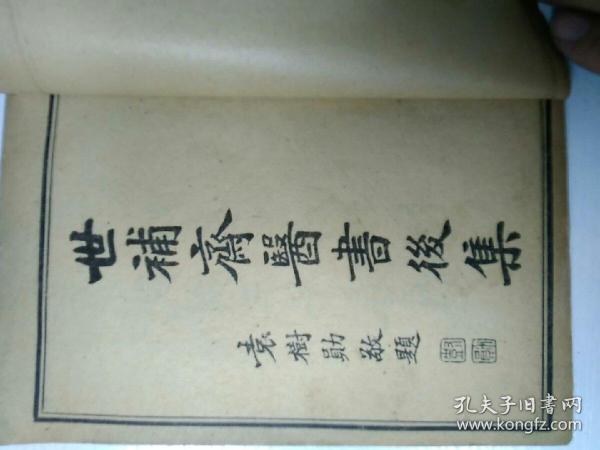 世補齋醫書後集
袁樹勛敬題
孔夫子旧書网
www.kongfz.com